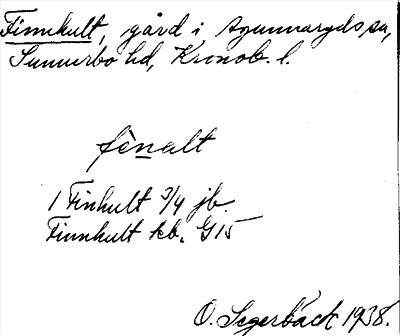 Finnhult, gård i Agunnaryds sn,
Sunnerbo hd, Kronob. l.
fènalt
1 Finhult 3/4 jb.
Finnhult kb. G15
O. Segerbäck 1938.